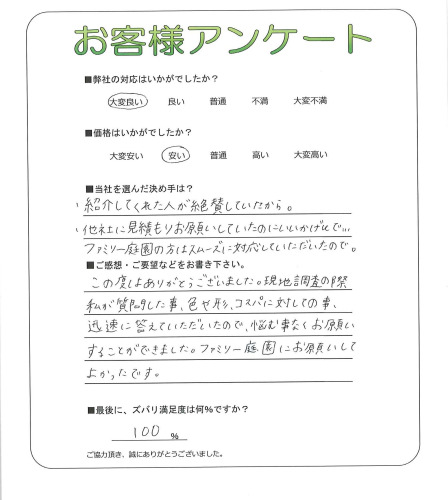 お客様アンケート
■弊社の対応はいかがでしたか?
大変良い 良い 普通 不満 大変不満
■価格はいかがでしたか?
大変安い 安い 普通 高い 大変高い
■当社を選んだ決め手は?
、紹介してくれた人が絶賛していたから。
、他社に見積もりお願いしていたのにいいかげんで…
ファミリー庭園の方はスムーズに対応していただいたので。
■ご感想・ご要望などをお書き下さい。
この度はありがとうございました。現地調査の際
私が質問した事、色や形、コスパに対しての事、
迅速に答えていただいたので、悩む事なくお願い
することができました。ファミリー庭園にお願いして
よかったです。
■最後に、ズバリ満足度は何%ですか?
100 %
ご協力頂き、誠にありがとうございました。